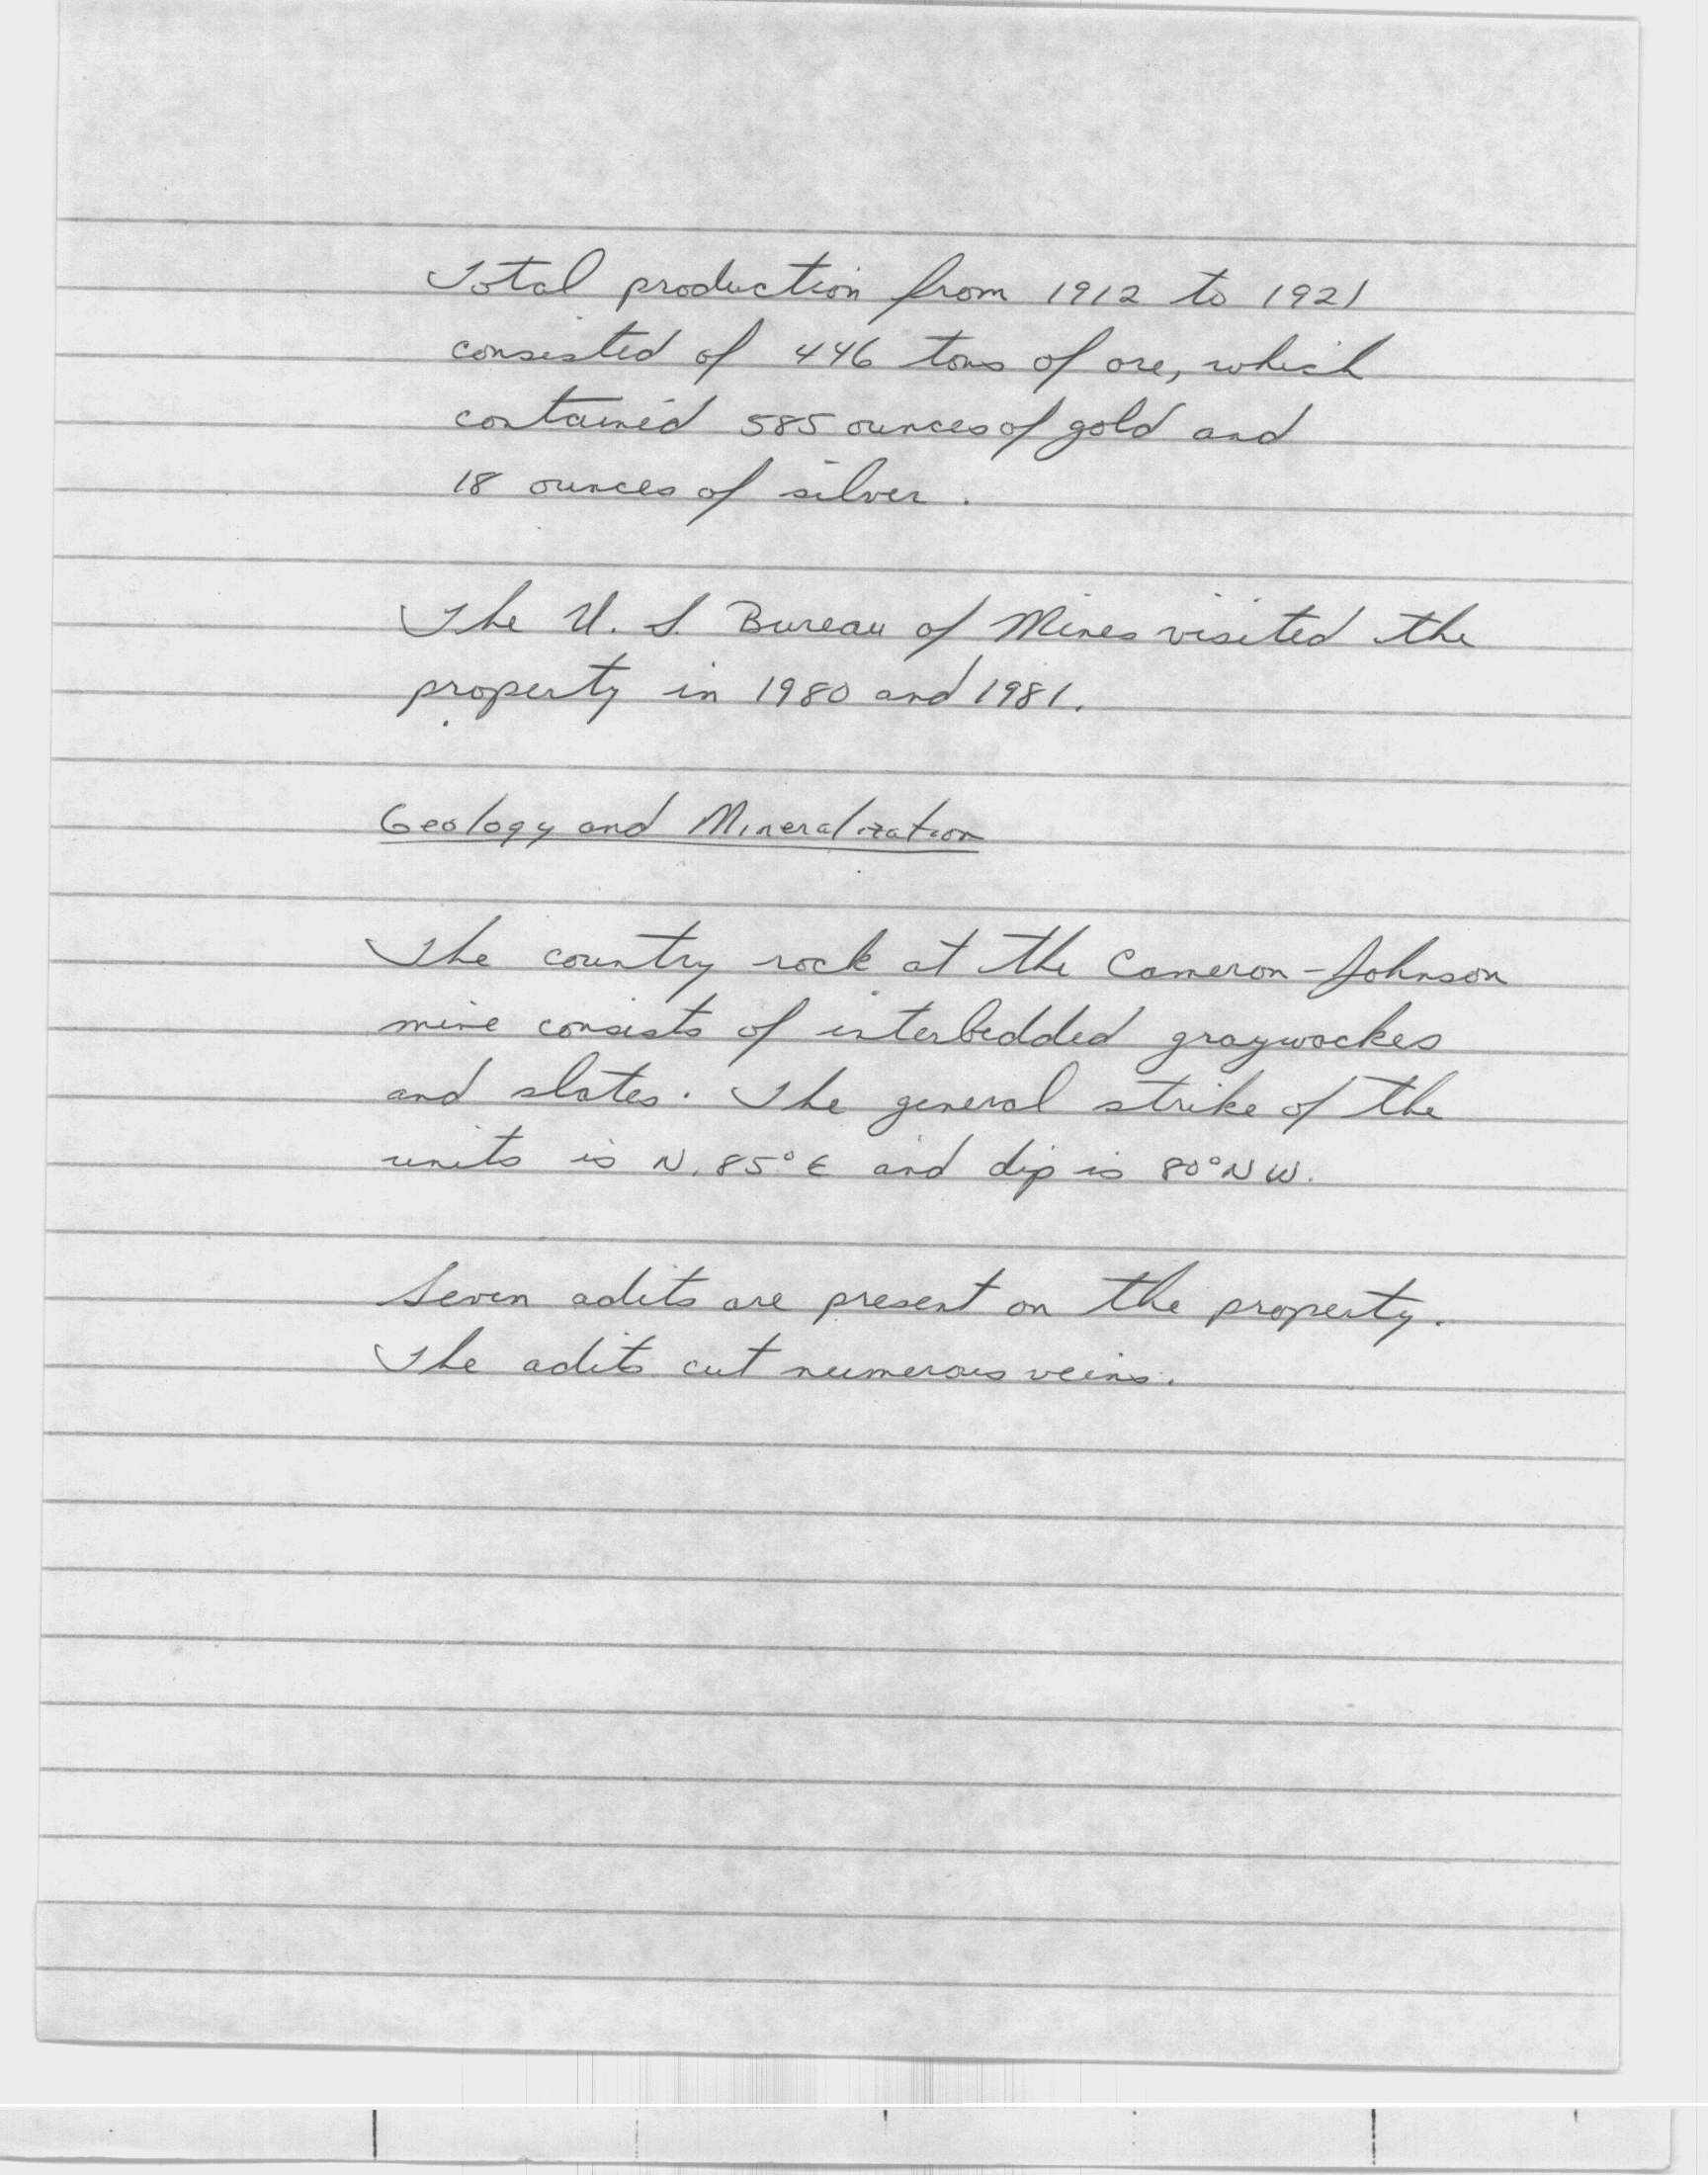 Total production from 1912 to 1921
consisted of 446 tons of ore, which
contained 585 ounces of gold and
18 ounces of silver.
The U. S. Bureau of Mines visited the
property in 1980 and 1981.
Geology and Mineralization
The country rock at the Cameron-Johnson
mine consists of interbedded graywackes
and slates. The general strike of the
units is N. 85° E and dip is 80° NW.
Seven adits are present on the property.
The adits cut numerous veins.